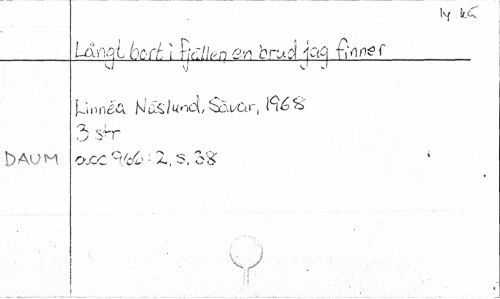 ly kä
Långt bort i fjällen en brud jag finner
Linnéa Näslund, Sävar, 1968
3 str
DAUM acc 966:2, s. 38